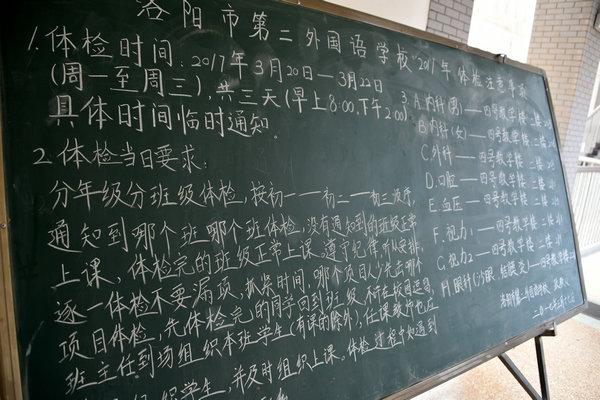 洛阳市第二外国语学校"2017年体检注意事项
1.体检时间：2017年3月20日—3月22日
(周一至周三)，共三天(早上8:00.下午2:00)
具体时间临时通知。
2.体检当日要求：
分年级分班级体检，按初一——初二——初三顺序，
通知到哪个班哪个班体检，没有通知到的班级正常
上课，体检完的班级正常上课。遵守纪律，听从安排，
逐一体检不要漏项，抓紧时间，哪个项目人少先去哪个
项目体检，先体检完的同学回到班级，不许在校园逗留，
班主任到场组织本班学生(有课的除外)，任课教师也应
组织学生，并及时组织上课。体检过程中如遇到
3.A.内科(男)——四号教学楼 二楼
B.内科(女)——四号教学楼 二楼
C.外科——四号教学楼 二楼
D.口腔——四号教学楼 二楼
E.血压——四号教学楼 二楼
F.视力1——四号教学楼 二楼
G.视力2——四号教学楼 二楼
H.眼科(沙眼、结膜炎)——四号教学楼
二〇一七年三月